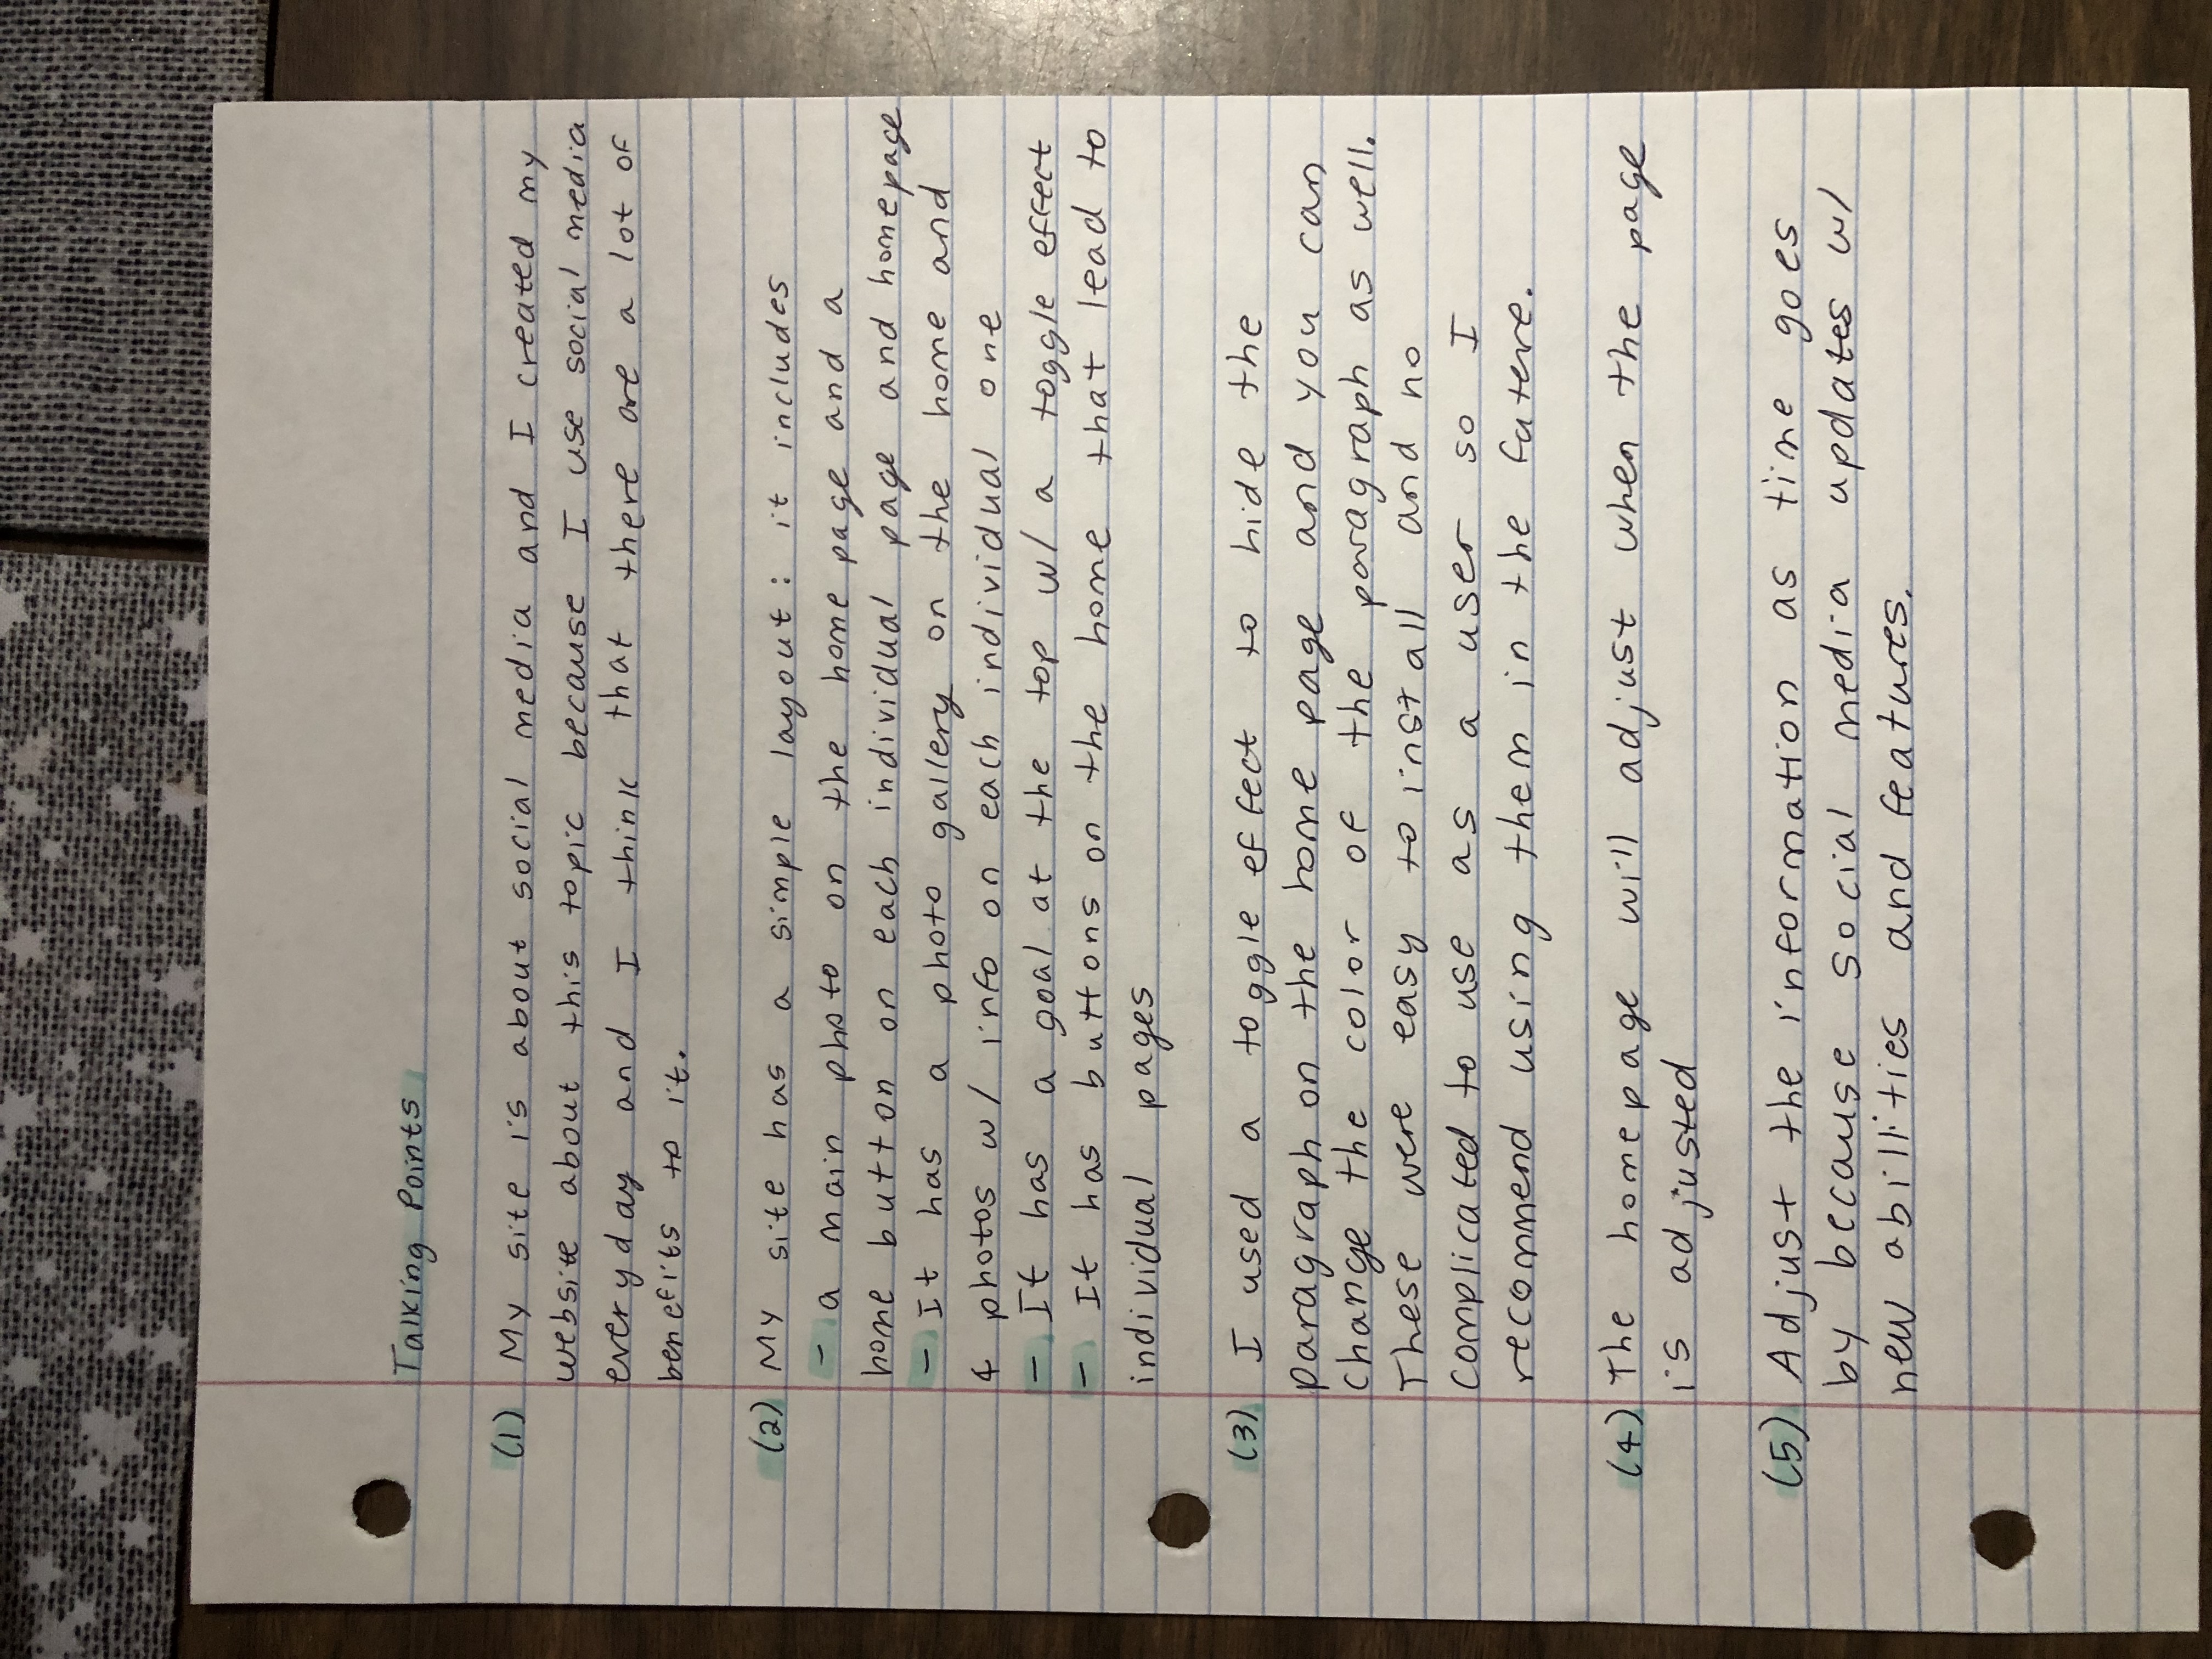 Talking Points
(1) My site is about social media and I created my
website about this topic because I use social media
everyday and I think that there are a lot of
benefits to it.
(2) My site has a simple layout: it includes
- a main photo on the home page and a
home button on each individual page and homepage
- It has a photo gallery on the home and
4 photos w/ info on each individual one
- It has a goal at the top w/ a toggle effect
- It has buttons on the home that lead to
individual pages
(3) I used a toggle effect to hide the
paragraph on the home page and you can
change the color of the paragraph as well.
These were easy to install and no
complicated to use as a user so I
recommend using them in the future.
(4) The homepage will adjust when the page
is adjusted
(5) Adjust the information as time goes
by because social media updates w/
new abillities and features.